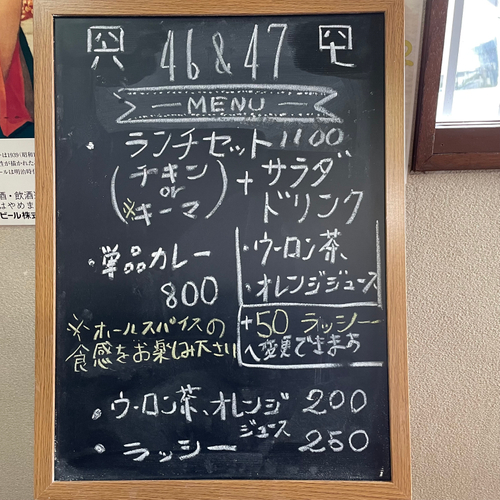 46 & 47
MENU
ランチセット 1100
(チキン or ※キーマ) + サラダ ドリンク
・ウーロン茶、
・オレンジジュース
+50 ラッシー
へ変更できます
・単品カレー
800
※ホールスパイスの
食感をお楽しみ下さい
・ウーロン茶、オレンジジュース 200
・ラッシー 250